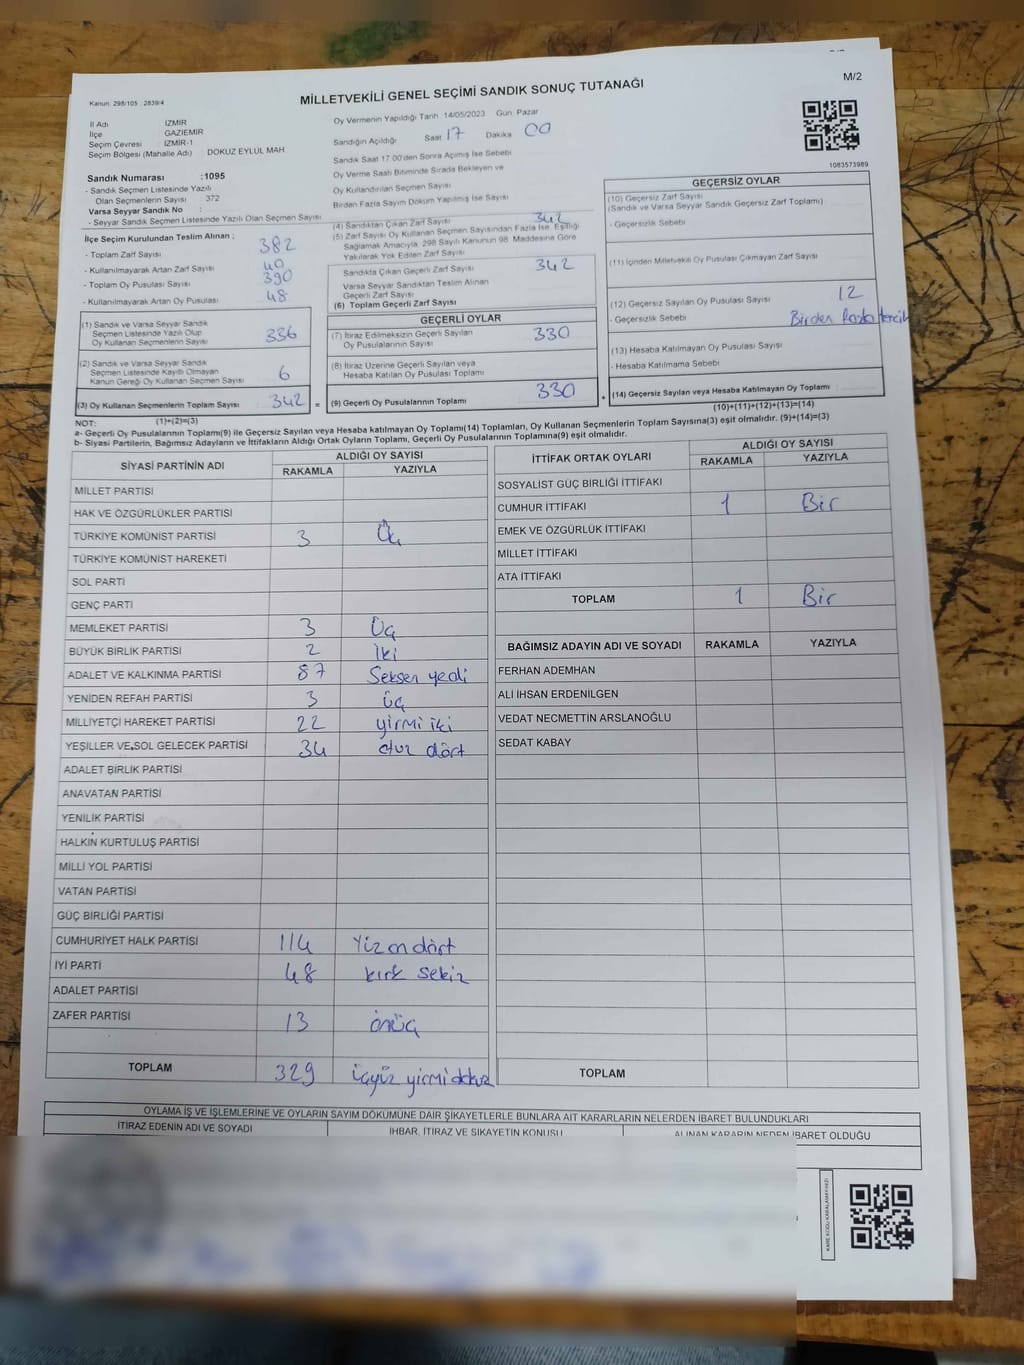 M/2
Kanun: 298/105 , 2839/4
MİLLETVEKİLİ GENEL SEÇİMİ SANDIK SONUÇ TUTANAĞI
İl Adı İZMİR
İlçe GAZİEMİR
Seçim Çevresi İZMİR-1
Seçim Bölgesi (Mahalle Adı) : DOKUZ EYLÜL MAH.
Sandık Numarası :1095
- Sandık Seçmen Listesinde Yazılı
Olan Seçmenlerin Sayısı : 372
Varsa Seyyar Sandık No :
- Seyyar Sandık Seçmen Listesinde Yazılı Olan Seçmen Sayısı
Oy Vermenin Yapıldığı Tarih 14/05/2023 Gün Pazar
Sandığın Açıldığı Saat 17 Dakika 00
Sandık Saat 17.00'den Sonra Açılmış İse Sebebi
Oy Verme Saati Bitiminde Sırada Bekleyen ve
Oy Kullandırılan Seçmen Sayısı
Birden Fazla Sayım Döküm Yapılmış İse Sayısı
1083573989
İlçe Seçim Kurulundan Teslim Alınan ;
- Toplam Zarf Sayısı 382
- Kullanılmayarak Artan Zarf Sayısı 40
- Toplam Oy Pusulası Sayısı 390
- Kullanılmayarak Artan Oy Pusulası 48
(1) Sandık ve Varsa Seyyar Sandık
Seçmen Listesinde Yazılı Olup
Oy Kullanan Seçmenlerin Sayısı 336
(2) Sandık ve Varsa Seyyar Sandık
Seçmen Listesinde Kayıtlı Olmayan
Kanun Gereği Oy Kullanan Seçmen Sayısı 6
(3) Oy Kullanan Seçmenlerin Toplam Sayısı 342 =
(1)+(2)=(3)
(4) Sandıktan Çıkan Zarf Sayısı 342
(5) Zarf Sayısı Oy Kullanan Seçmen Sayısından Fazla İse, Eşitliği
Sağlamak Amacıyla, 298 Sayılı Kanunun 98. Maddesine Göre
Yakılarak Yok Edilen Zarf Sayısı
Sandıkta Çıkan Geçerli Zarf Sayısı 342
Varsa Seyyar Sandıktan Teslim Alınan
Geçerli Zarf Sayısı
(6) Toplam Geçerli Zarf Sayısı
GEÇERLİ OYLAR
(7) İtiraz Edilmeksizin Geçerli Sayılan
Oy Pusulalarının Sayısı 330
(8) İtiraz Üzerine Geçerli Sayılan veya
Hesaba Katılan Oy Pusulası Toplamı
(9) Geçerli Oy Pusulalarının Toplamı 330 +
GEÇERSİZ OYLAR
(10) Geçersiz Zarf Sayısı
(Sandık ve Varsa Seyyar Sandık Geçersiz Zarf Toplamı)
- Geçersizlik Sebebi
(11) İçinden Milletvekili Oy Pusulası Çıkmayan Zarf Sayısı
(12) Geçersiz Sayılan Oy Pusulası Sayısı 12
- Geçersizlik Sebebi Birden fazla tercih
(13) Hesaba Katılmayan Oy Pusulası Sayısı
- Hesaba Katılmama Sebebi
(14) Geçersiz Sayılan veya Hesaba Katılmayan Oy Toplamı
(10)+(11)+(12)+(13)=(14)
NOT:
a- Geçerli Oy Pusulalarının Toplamı(9) ile Geçersiz Sayılan veya Hesaba katılmayan Oy Toplamı(14) Toplamları, Oy Kullanan Seçmenlerin Toplam Sayısına(3) eşit olmalıdır. (9)+(14)=(3)
b- Siyasi Partilerin, Bağımsız Adayların ve İttifakların Aldığı Ortak Oyların Toplamı, Geçerli Oy Pusulalarının Toplamına(9) eşit olmalıdır.
SİYASİ PARTİNİN ADI ALDIĞI OY SAYISI
RAKAMLA YAZIYLA
MİLLET PARTİSİ
HAK VE ÖZGÜRLÜKLER PARTİSİ
TÜRKİYE KOMÜNİST PARTİSİ 3 Üç
TÜRKİYE KOMÜNİST HAREKETİ
SOL PARTİ
GENÇ PARTİ
MEMLEKET PARTİSİ 3 Üç
BÜYÜK BİRLİK PARTİSİ 2 iki
ADALET VE KALKINMA PARTİSİ 87 Seksen yedi
YENİDEN REFAH PARTİSİ 3 üç
MİLLİYETÇİ HAREKET PARTİSİ 22 yirmi iki
YEŞİLLER VE SOL GELECEK PARTİSİ 34 otuz dört
ADALET BİRLİK PARTİSİ
ANAVATAN PARTİSİ
YENİLİK PARTİSİ
HALKIN KURTULUŞ PARTİSİ
MİLLİ YOL PARTİSİ
VATAN PARTİSİ
GÜÇ BİRLİĞİ PARTİSİ
CUMHURİYET HALK PARTİSİ 114 Yüz on dört
İYİ PARTİ 48 kırk sekiz
ADALET PARTİSİ
ZAFER PARTİSİ 13 onüç
TOPLAM 329 üçyüz yirmi dokuz
İTTİFAK ORTAK OYLARI ALDIĞI OY SAYISI
RAKAMLA YAZIYLA
SOSYALİST GÜÇ BİRLİĞİ İTTİFAKI
CUMHUR İTTİFAKI 1 Bir
EMEK VE ÖZGÜRLÜK İTTİFAKI
MİLLET İTTİFAKI
ATA İTTİFAKI
TOPLAM 1 Bir
BAĞIMSIZ ADAYIN ADI VE SOYADI RAKAMLA YAZIYLA
FERHAN ADEMHAN
ALİ İHSAN ERDENİLGEN
VEDAT NECMETTİN ARSLANOĞLU
SEDAT KABAY
TOPLAM
OYLAMA İŞ VE İŞLEMLERİNE VE OYLARIN SAYIM DÖKÜMÜNE DAİR ŞİKAYETLERLE BUNLARA AİT KARARLARIN NELERDEN İBARET BULUNDUKLARI
İTİRAZ EDENİN ADI VE SOYADI İHBAR, İTİRAZ VE ŞİKAYETİN KONUSU ALINAN KARARIN NEDEN İBARET OLDUĞU